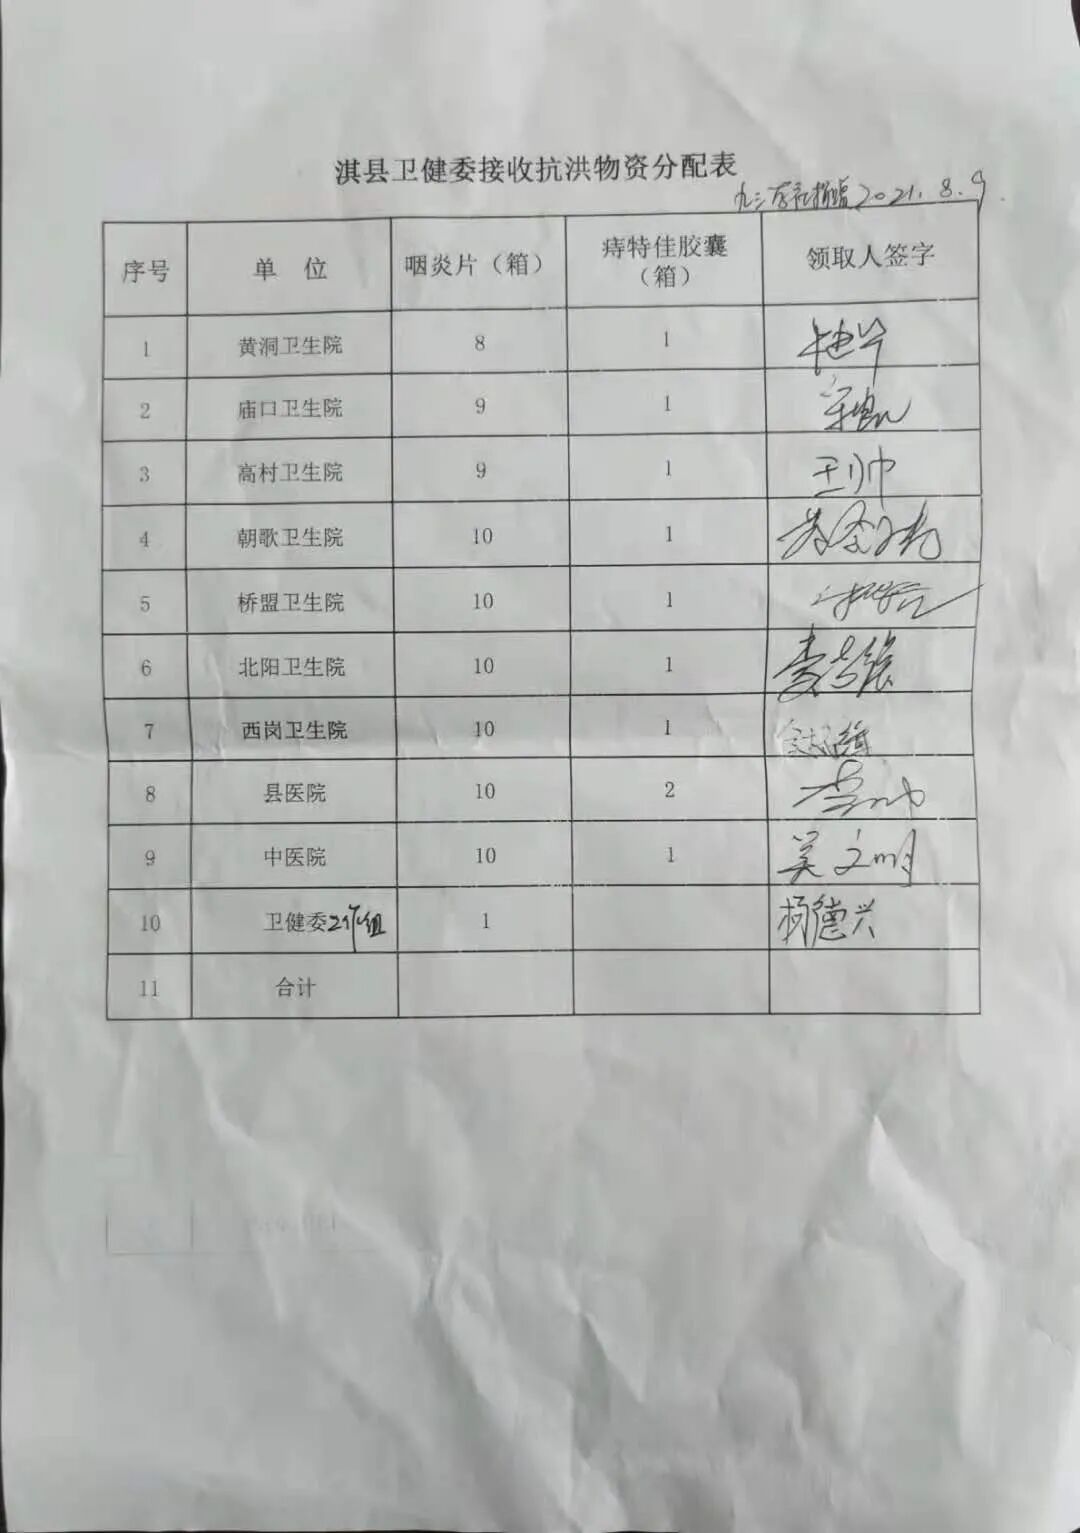 淇县卫健委接收抗洪物资分配表
九三学社捐赠 2021.8.9
序号 单 位 咽炎片（箱） 痔特佳胶囊（箱） 领取人签字
1 黄洞卫生院 8 1
2 庙口卫生院 9 1
3 高村卫生院 9 1 王帅
4 朝歌卫生院 10 1
5 桥盟卫生院 10 1
6 北阳卫生院 10 1
7 西岗卫生院 10 1
8 县医院 10 2
9 中医院 10 1 吴文明
10 卫健委工作组 1 杨德兴
11 合计